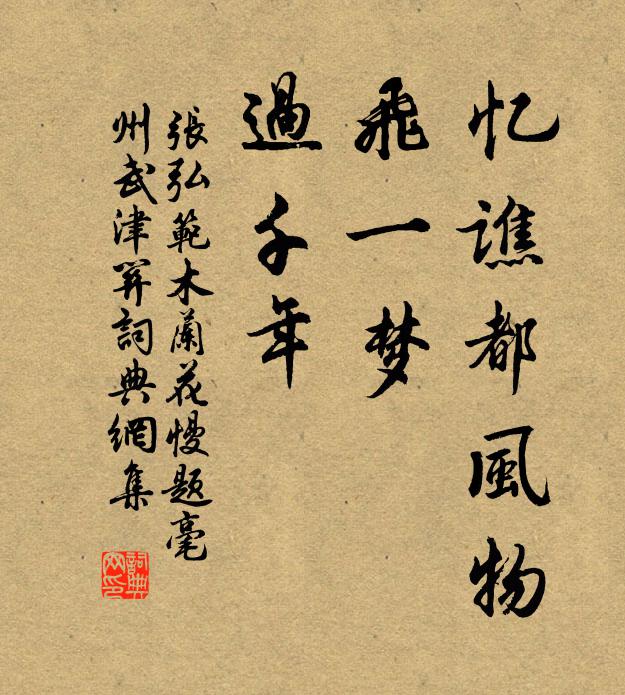 忆譙都風物
飛一梦
過千年
張弘範木蘭花慢題亳
州武津関詞典網集
詞典网印